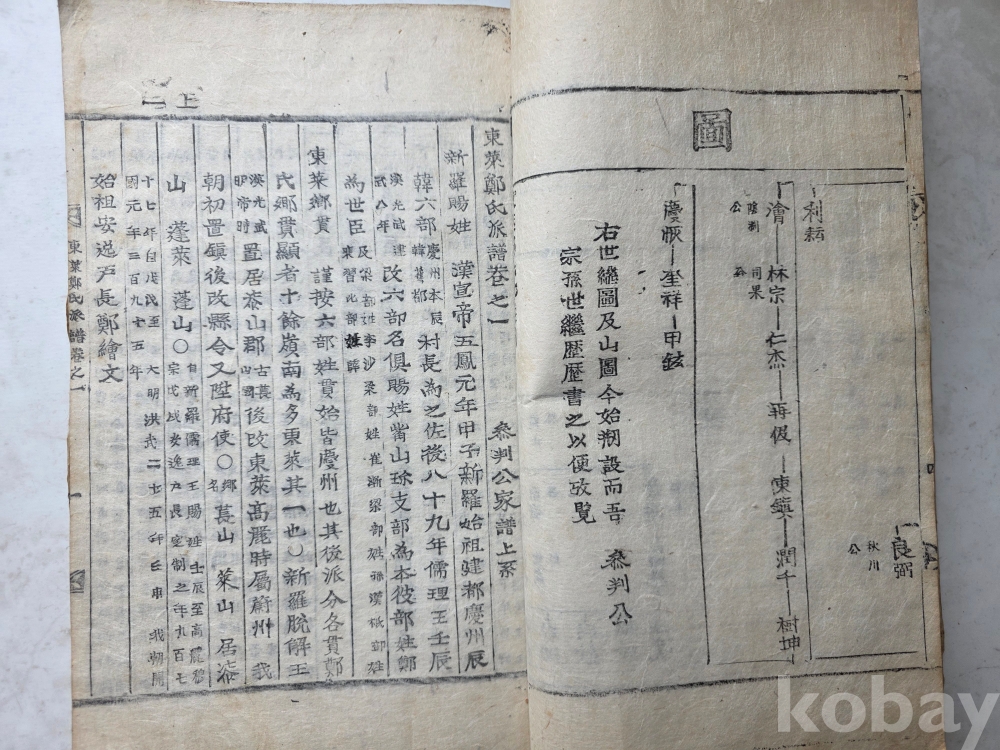 圖
利
良弼
秋川公
澮―林宗―仁杰―再伋―東鎭―潤千―樹坤
慶恢―奎祥―甲鉉
右世繼圖及山圖今始刱設而吾 叅判公
宗孫世繼歷歷書之以便攷覽
上一
東萊鄭氏派譜卷之一 叅判公家譜上系
新羅賜姓 漢宣帝五鳳元年甲子新羅始祖建都慶州辰
韓六部慶州本辰韓舊都村長為之佐後八十九年儒理王壬辰
漢光武建武八年改六部名俱賜姓觜山珍支部為本彼部姓鄭
為世臣及梁部姓李沙梁部姓崔漸梁部姓孫漢祗部姓裵習比部姓薛
東萊鄉貫 謹按六部姓貫始皆慶州也其後派分各貫鄭
氏鄉貫顯者十餘嶺南為多東萊其一也○新羅脫解王
漢光武明帝時置居柒山郡古萇山國後改東萊高麗時屬蔚州我
朝初置鎭後改縣令又陞府使○鄉名萇山 萊山 居柒
山 蓬萊 蓬山○自新羅儒理王賜姓壬辰至高麗穆宗戊戌安逸戶長定制之年九百七
十七年自戊戌至 大明洪武二十五年壬申我朝開國元年三百九十五年
始祖安逸戶長鄭繪文
東萊鄭氏派譜卷之一
一
kobay